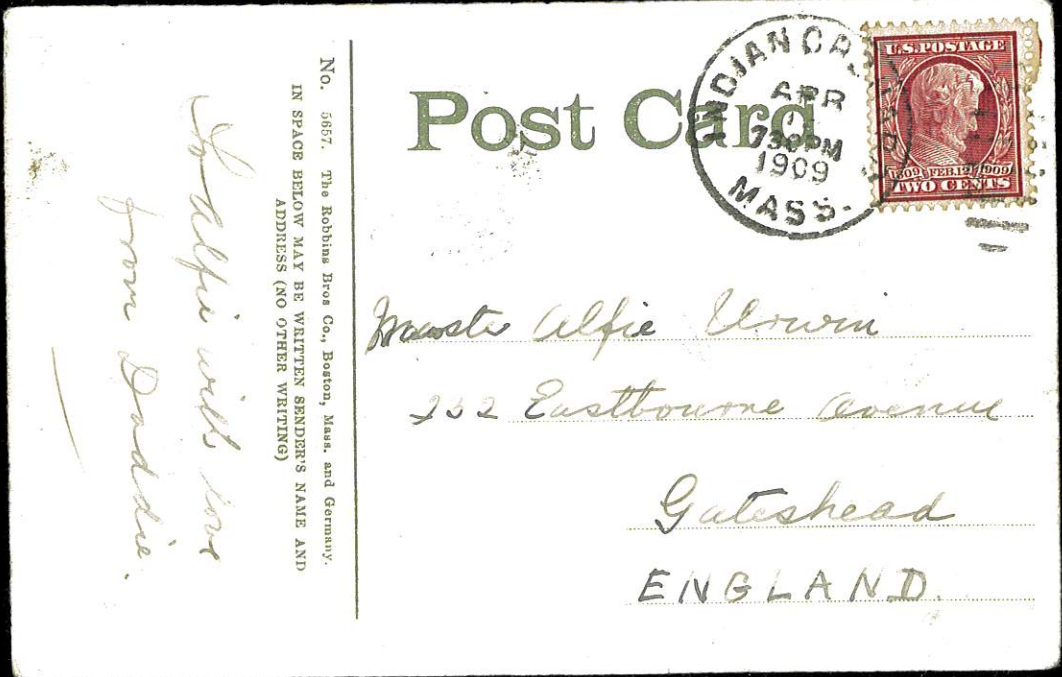 Post Card
INDIAN ORCHARD
APR
730PM
1909
MASS.
U.S.POSTAGE
1809 FEB.12 1909
TWO CENTS
No. 5657. The Robbins Bros Co., Boston, Mass. and Germany.
IN SPACE BELOW MAY BE WRITTEN SENDER'S NAME AND
ADDRESS (NO OTHER WRITING)
To Alfie with love
from Daddie.
Master Alfie Urwin
252 Eastbourne Avenue
Gateshead
ENGLAND.